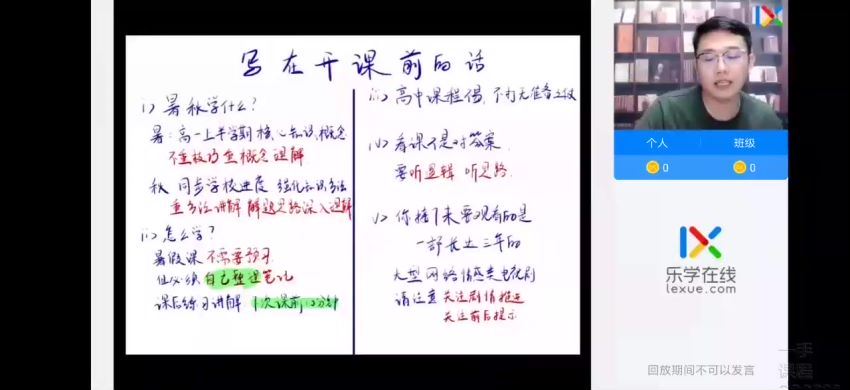 写在开课前的话
i) 暑秋学什么?
暑:高一上半学期核心知识概念
不重技巧重概念理解
秋 同步学校进度 强化知识方法
重方法讲解 解题思路深入理解
ii) 怎么学?
暑假课 不需要预习
但必须 自己整理笔记
课后练习讲解 下次课前
iii) 高中课程傷, 不打无准备之仗
iv) 看课不是对答案
要听逻辑 听思路.
v) 你接下来要观看的是
一部长达三年的
大型网络情感类电视剧
请注意 关注剧情推进
关注前后提示
个人
班级
0
0
乐学在线
lexue.com
回放期间不可以发言
一手
课程